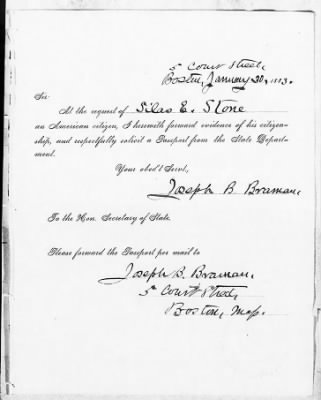 5 Court Street,
Boston, January 30, 1883.
Sir
At the request of Silas E. Stone
an American citizen, I herewith forward evidence of his citizen-
ship, and respectfully solicit a Passport from the State Depart-
ment.
Your obed't Serv't,
Joseph B Braman,
To the Hon. Secretary of State.
Please forward the Passport per mail to
Joseph B. Braman,
5 Court Street,
Boston, Mass.